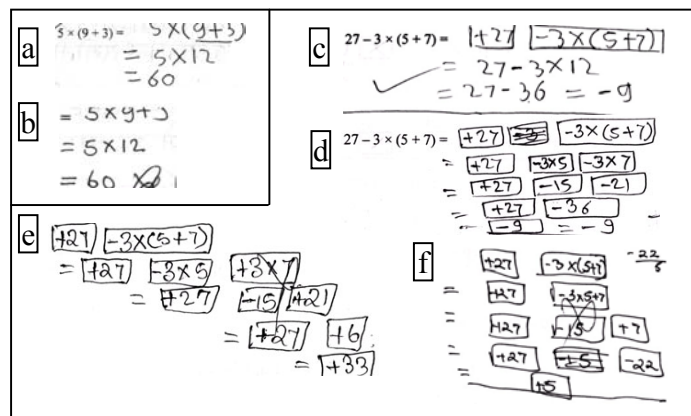 a
5 × (9 + 3) = 5×(9+3)
= 5×12
= 60
b
= 5×9+3
= 5×12
= 60
c
27 – 3 × (5 + 7) = +27 -3×(5+7)
= 27-3×12
= 27-36 = -9
d
27 – 3 × (5 + 7) = +27 -3×(5+7)
= +27 -3×5 -3×7
= +27 -15 -21
= +27 -36
= -9 = -9
e
+27 -3×(5+7)
= +27 -3×5 +3×7
= +27 -15 +21
= +27 +6
= +33
f
+27 -3×(5+7) -22
= +27 -3×5+7
= +27 -15 +7
= +27 -15 -22
= +5